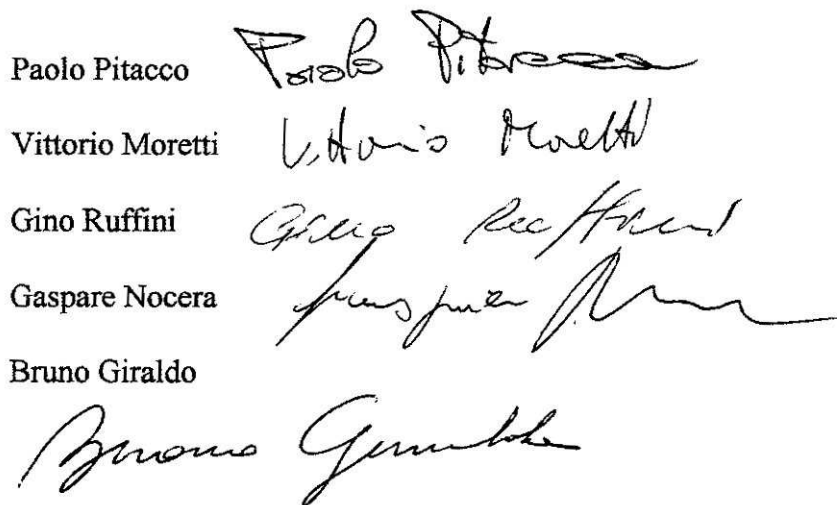 Paolo Pitacco Paolo Pitacco
Vittorio Moretti Vittorio Moretti
Gino Ruffini Gino Ruffini
Gaspare Nocera Gaspare
Bruno Giraldo
Bruno Giraldo